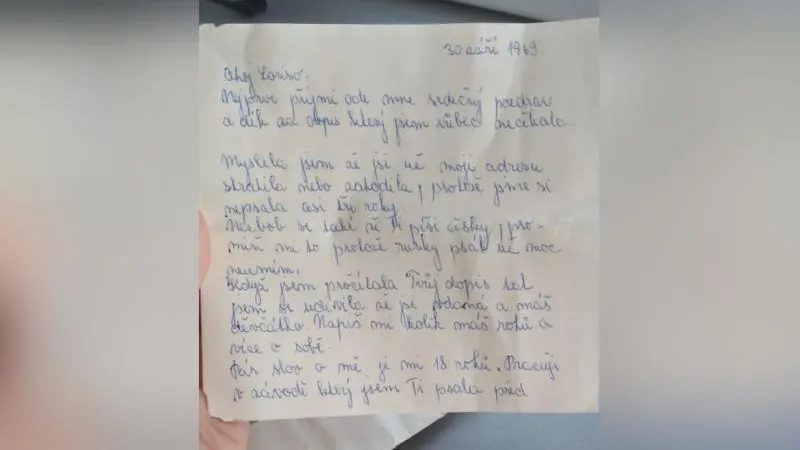 30 září 1969.
Ahoj Lariso.
Nejprve přijmi ode mne srdečný pozdrav
a dík za dopis který jsem vůbec nečekala.
Myslela jsem že jsi už moji adresu
stratila nebo zahodila, protože jsme si
nepsala asi tři roky.
Nezlob se také že Ti píši česky, pro-
miň mi to protože rusky psát už moc
neumím.
Když jsem pročítala Tvůj dopis tak
jsem se udivila že jsi vdaná a máš
děvčátko. Napiš mi kolik máš roků a
více o sobě.
Pár slov o mě. je mi 18 roků. Pracuji
v závodě který jsem Ti psala před